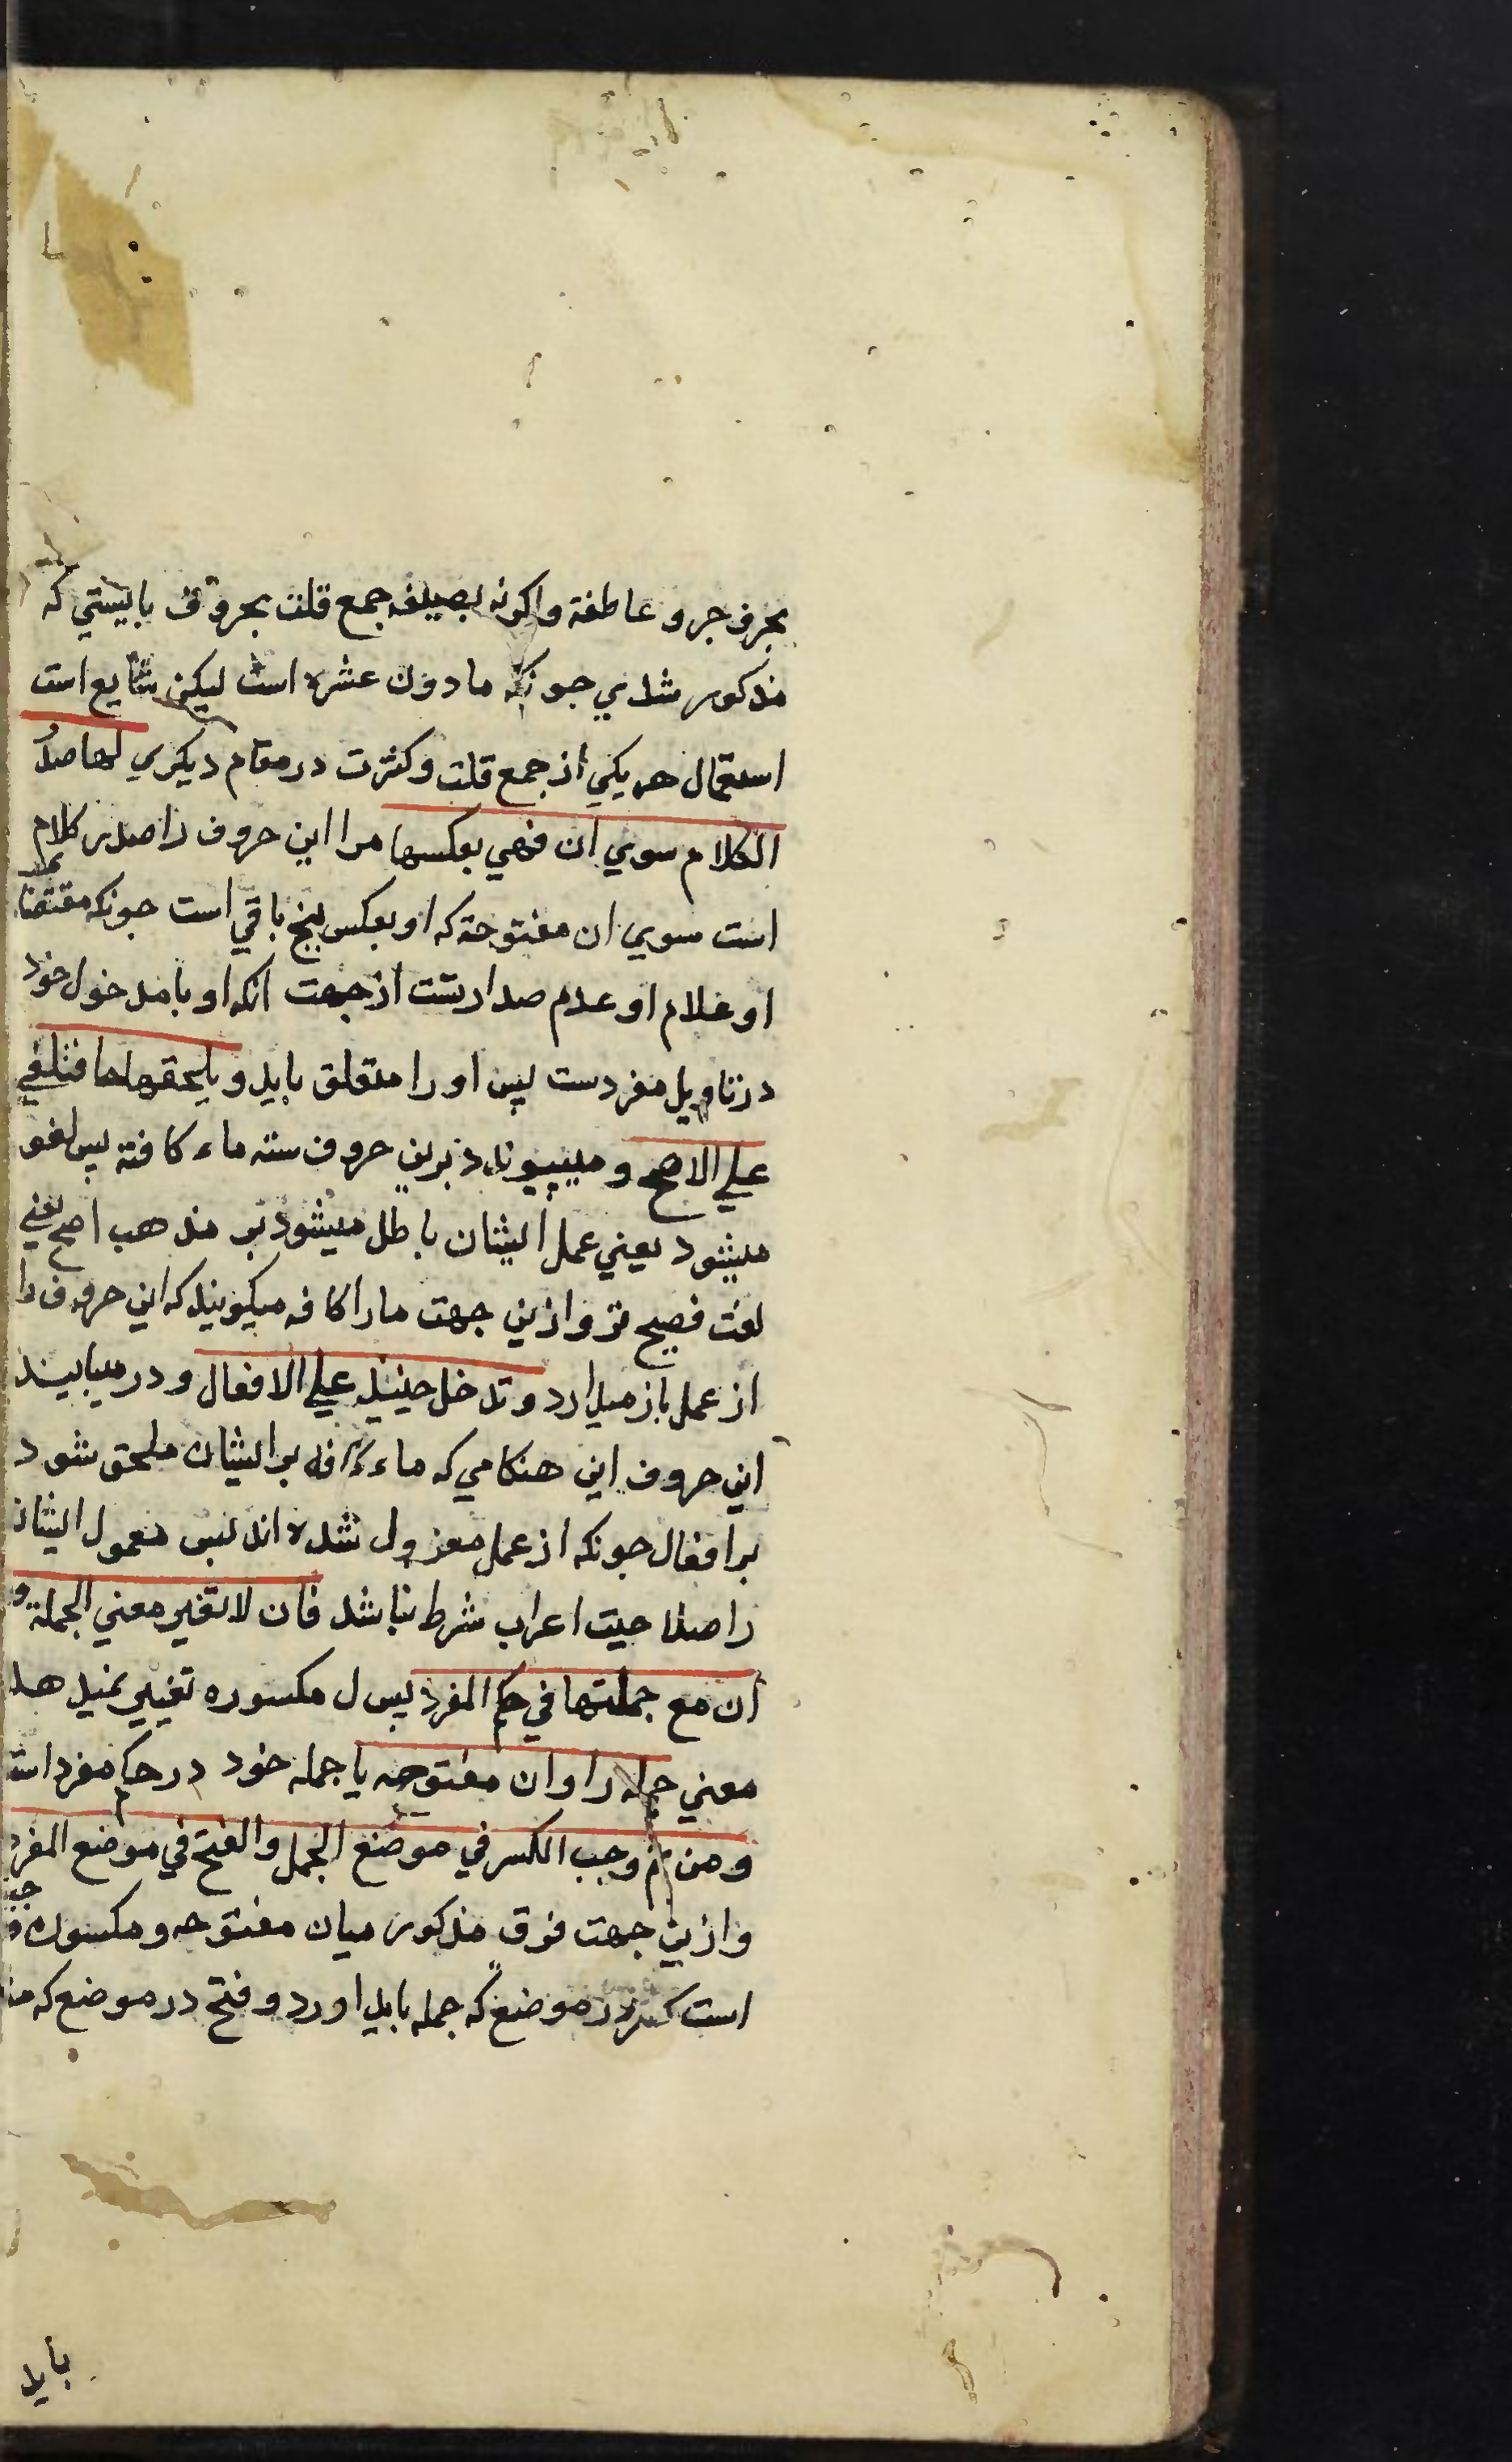 بحرف جر و عاطفة واكونه بصيغه جمع قلت بحروف بايستي كه
مذكور شدي جونكه مادون عشره است ليكن شايع است
استعمال هريكي از جمع قلت وكثرت در مقام ديكري لها صدر
الكلام سوي ان فهي بعكسها مرا اين حروف راصدر كلام
است سوي ان مفتوحة كه او بعكس پنج باقي است جونكه
او علام او عدم صدارتست از جهت انكه او با مدخول خود
در تاويل مفردست پس او را متعلق بايد و يلحقها ما فتلغي
علي الاصح و ميپيوندد برين حروف سته ماء كافة پس لغو
ميشود يعني عمل ايشان باطل ميشود بر مذهب اصح يعني
لغت فصيح تر وازين جهت ما را كافه ميكويند كه اين حروف را
از عمل باز ميدارد و تدخل حينيذ علي الافعال و در ميايند
اين حروف اين هنكامي كه ماء كافه بر ايشان ملحق شود
بر افعال جونكه از عمل معزول شده اند پس معمول ايشان
را صلاحيت اعراب شرط نباشد فان لا تغير معني الجملة و
أن مع جملتها في حكم المفرد پس ل مكسوره تغيير نميدهد
معني جمله را وان مفتوحه با جمله خود در حكم مفرد است
ومن ثم وجب الكسر في موضع الجمل والفتح في موضع المفرد
وازين جهت فرق مذكور ميان مفتوحه و مكسوره
است كسر در موضع كه جمله بايد اورد و فتح در موضع كه
بايد